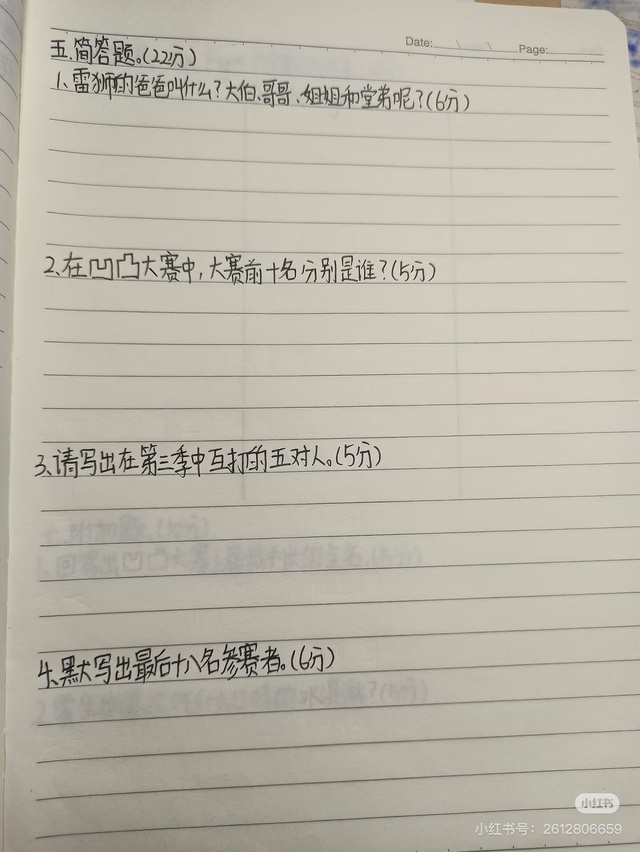 Date:
Page:
五.简答题。(22分)
1.雷狮的爸爸叫什么?大伯、哥哥、姐姐和堂弟呢?(6分)
2.在凹凸大赛中,大赛前十名分别是谁?(5分)
3.请写出在第三季中互打的五对人。(5分)
4.默写出最后十八名参赛者。(6分)
小红书
小红书号:2612806659